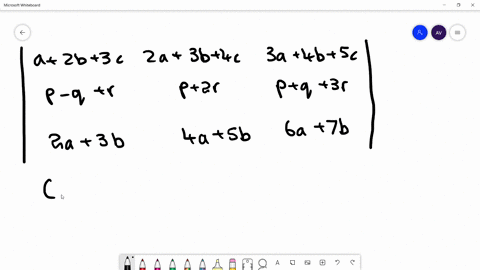 Microsoft Whiteboard
AV
a+2b+3c 2a+3b+4c 3a+4b+5c
p-q+r p+2r p+q+3r
2a+3b 4a+5b 6a+7b
C